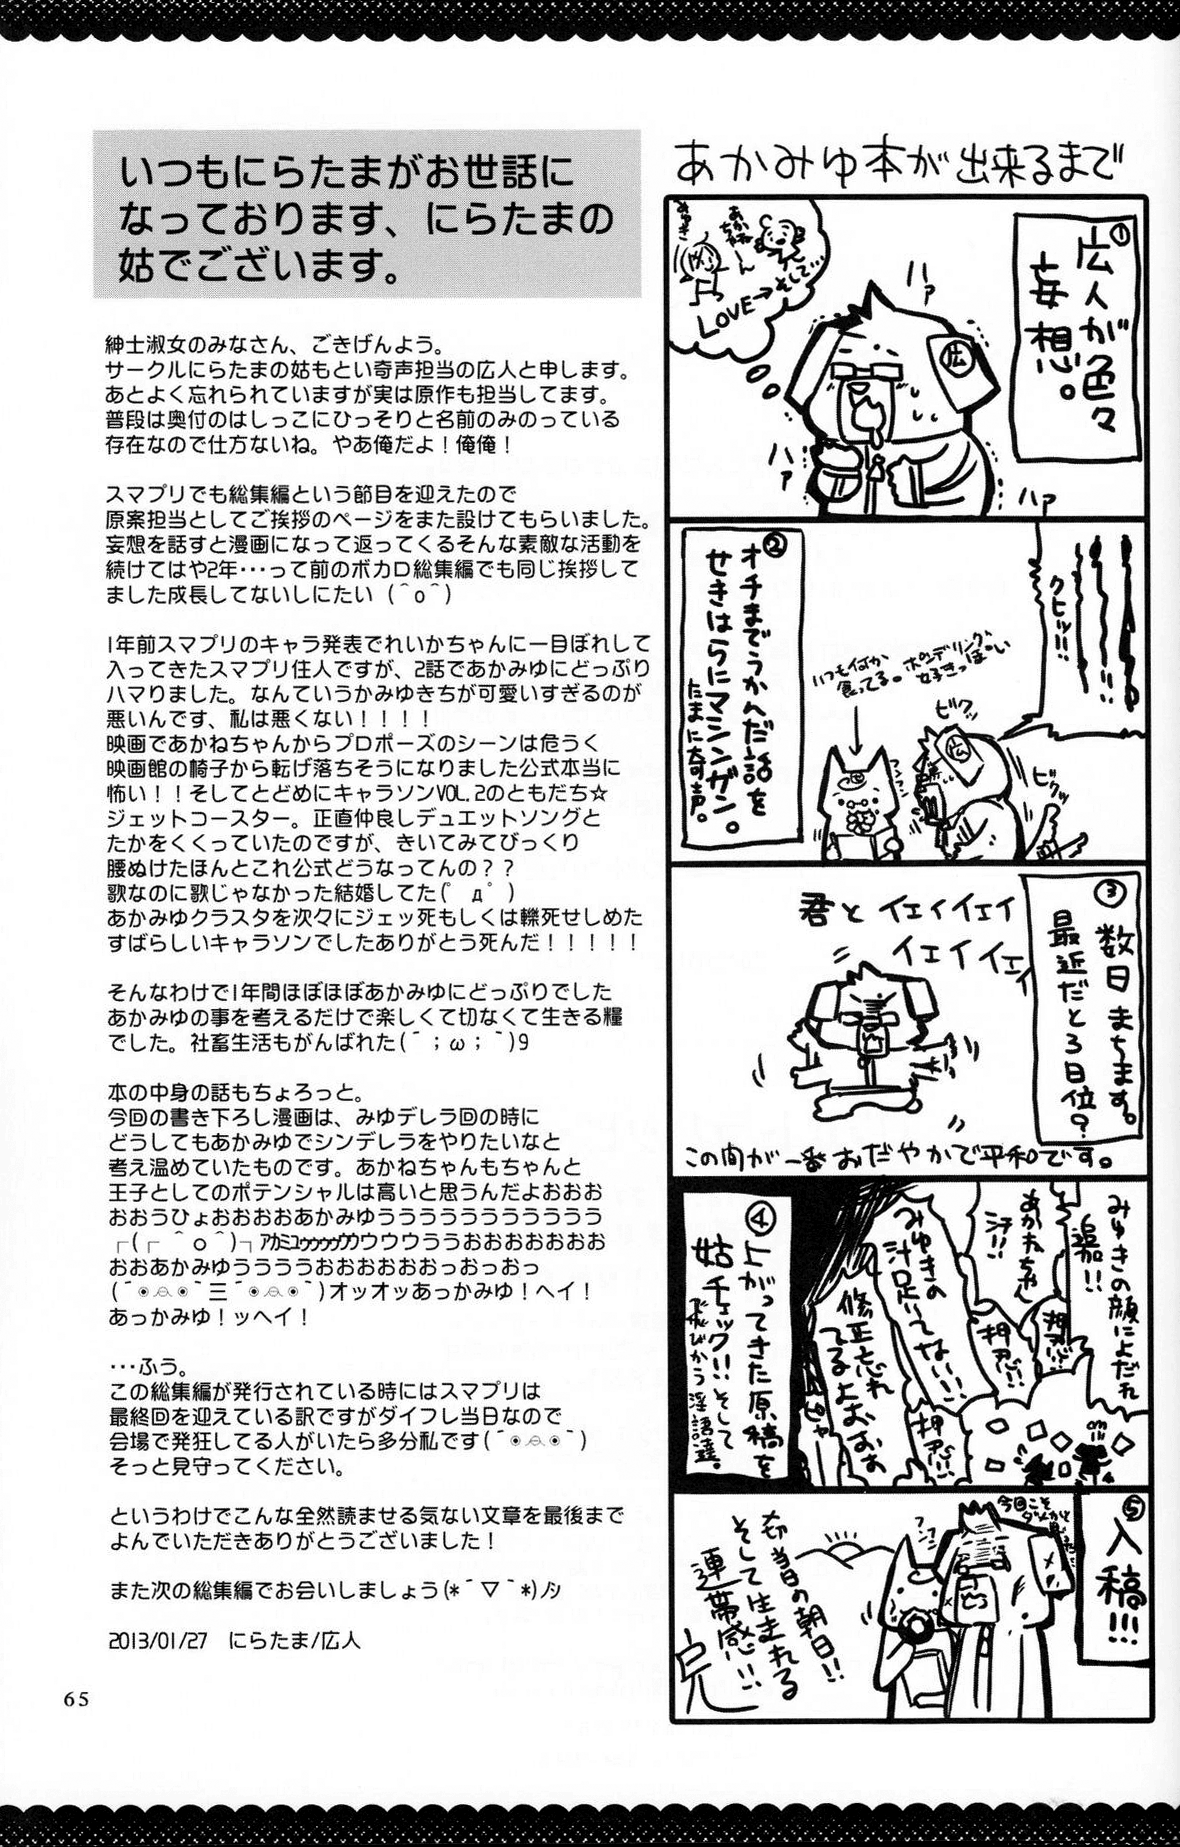 いつもにらたまがお世話に
なっております、にらたまの
姑でございます。
紳士淑女のみなさん、ごきげんよう。
サークルにらたまの姑もとい奇声担当の広人と申します。
あとよく忘れられていますが実は原作も担当してます。
普段は奥付のはしっこにひっそりと名前のみのっている
存在なので仕方ないね。やあ俺だよ！俺俺！
スマプリでも総集編という節目を迎えたので
原案担当としてご挨拶のページをまた設けてもらいました。
妄想を話すと漫画になって返ってくるそんな素敵な活動を
続けてはや2年･･･って前のボカロ総集編でも同じ挨拶して
ました成長してないしにたい（＾o＾）
1年前スマプリのキャラ発表でれいかちゃんに一目ぼれして
入ってきたスマプリ住人ですが、2話であかみゆにどっぷり
ハマりました。なんていうかみゆきちが可愛いすぎるのが
悪いんです、私は悪くない！！！！
映画であかねちゃんからプロポーズのシーンは危うく
映画館の椅子から転げ落ちそうになりました公式本当に
怖い！！そしてとどめにキャラソンVOL.2のともだち☆
ジェットコースター。正直仲良しデュエットソングと
たかをくくっていたのですが、きいてみてびっくり
腰ぬけたほんとこれ公式どうなってんの？？
歌なのに歌じゃなかった結婚してた(ﾟ дﾟ)
あかみゆクラスタを次々にジェッ死もしくは轢死せしめた
すばらしいキャラソンでしたありがとう死んだ！！！！！
そんなわけで1年間ほぼほぼあかみゆにどっぷりでした
あかみゆの事を考えるだけで楽しくて切なくて生きる糧
でした。社畜生活もがんばれた(´；ω；`)9
本の中身の話もちょろっと。
今回の書き下ろし漫画は、みゆデレラ回の時に
どうしてもあかみゆでシンデレラをやりたいなと
考え温めていたものです。あかねちゃんもちゃんと
王子としてのポテンシャルは高いと思うんだよおおお
おおうひょおおおおあかみゆううううううううううう
┌(┌ ＾o＾)┐ｱｶﾐﾕｩｩｩｩｩウウウウううおおおおおおお
おおあかみゆうううううおおおおおおおっおっおっ
(´◉◞౪◟◉`三´◉◞౪◟◉`)オッオッあっかみゆ！ヘイ！
あっかみゆ！ッヘイ！
･･･ふう。
この総集編が発行されている時にはスマプリは
最終回を迎えている訳ですがダイフレ当日なので
会場で発狂してる人がいたら多分私です(´◉◞౪◟◉`)
そっと見守ってください。
というわけでこんな全然読ませる気ない文章を最後まで
よんでいただきありがとうございました！
また次の総集編でお会いしましょう(*´▽`*)ﾉｼ
2013/01/27　にらたま/広人
65
あかみゆ本が出来るまで
①広人が色々
妄想。
みゆき
あかねちゃーん
LOVE→そして…
広
ハァ
ハァ
ハァ
②オチまでうかんだ話を
せきはらにマシンガン。
たまに奇声。
クヒッ!!
いつも何か
食ってる。ポンデリング
好きっぽい
ビクッ
ビクッ
広
③数日まちます。
最近だと3日位？
君とイェィイェイ
イェイイェイ
この間が一番おだやかで平和です。
④上がってきた原稿を
姑チェック!!そして
飛びかう淫語達。
みゆきの顔によだれ
追加!!
あかねちゃん
汁!!
みゆきの
汁足りてない!!
修正忘れ
てるよおぉぉ
押忍!!
押忍!!
押忍!!
⑤入稿!!!
フンフン
今回こそ
切当日の朝日!!
そして生まれる
連帯感!!
完